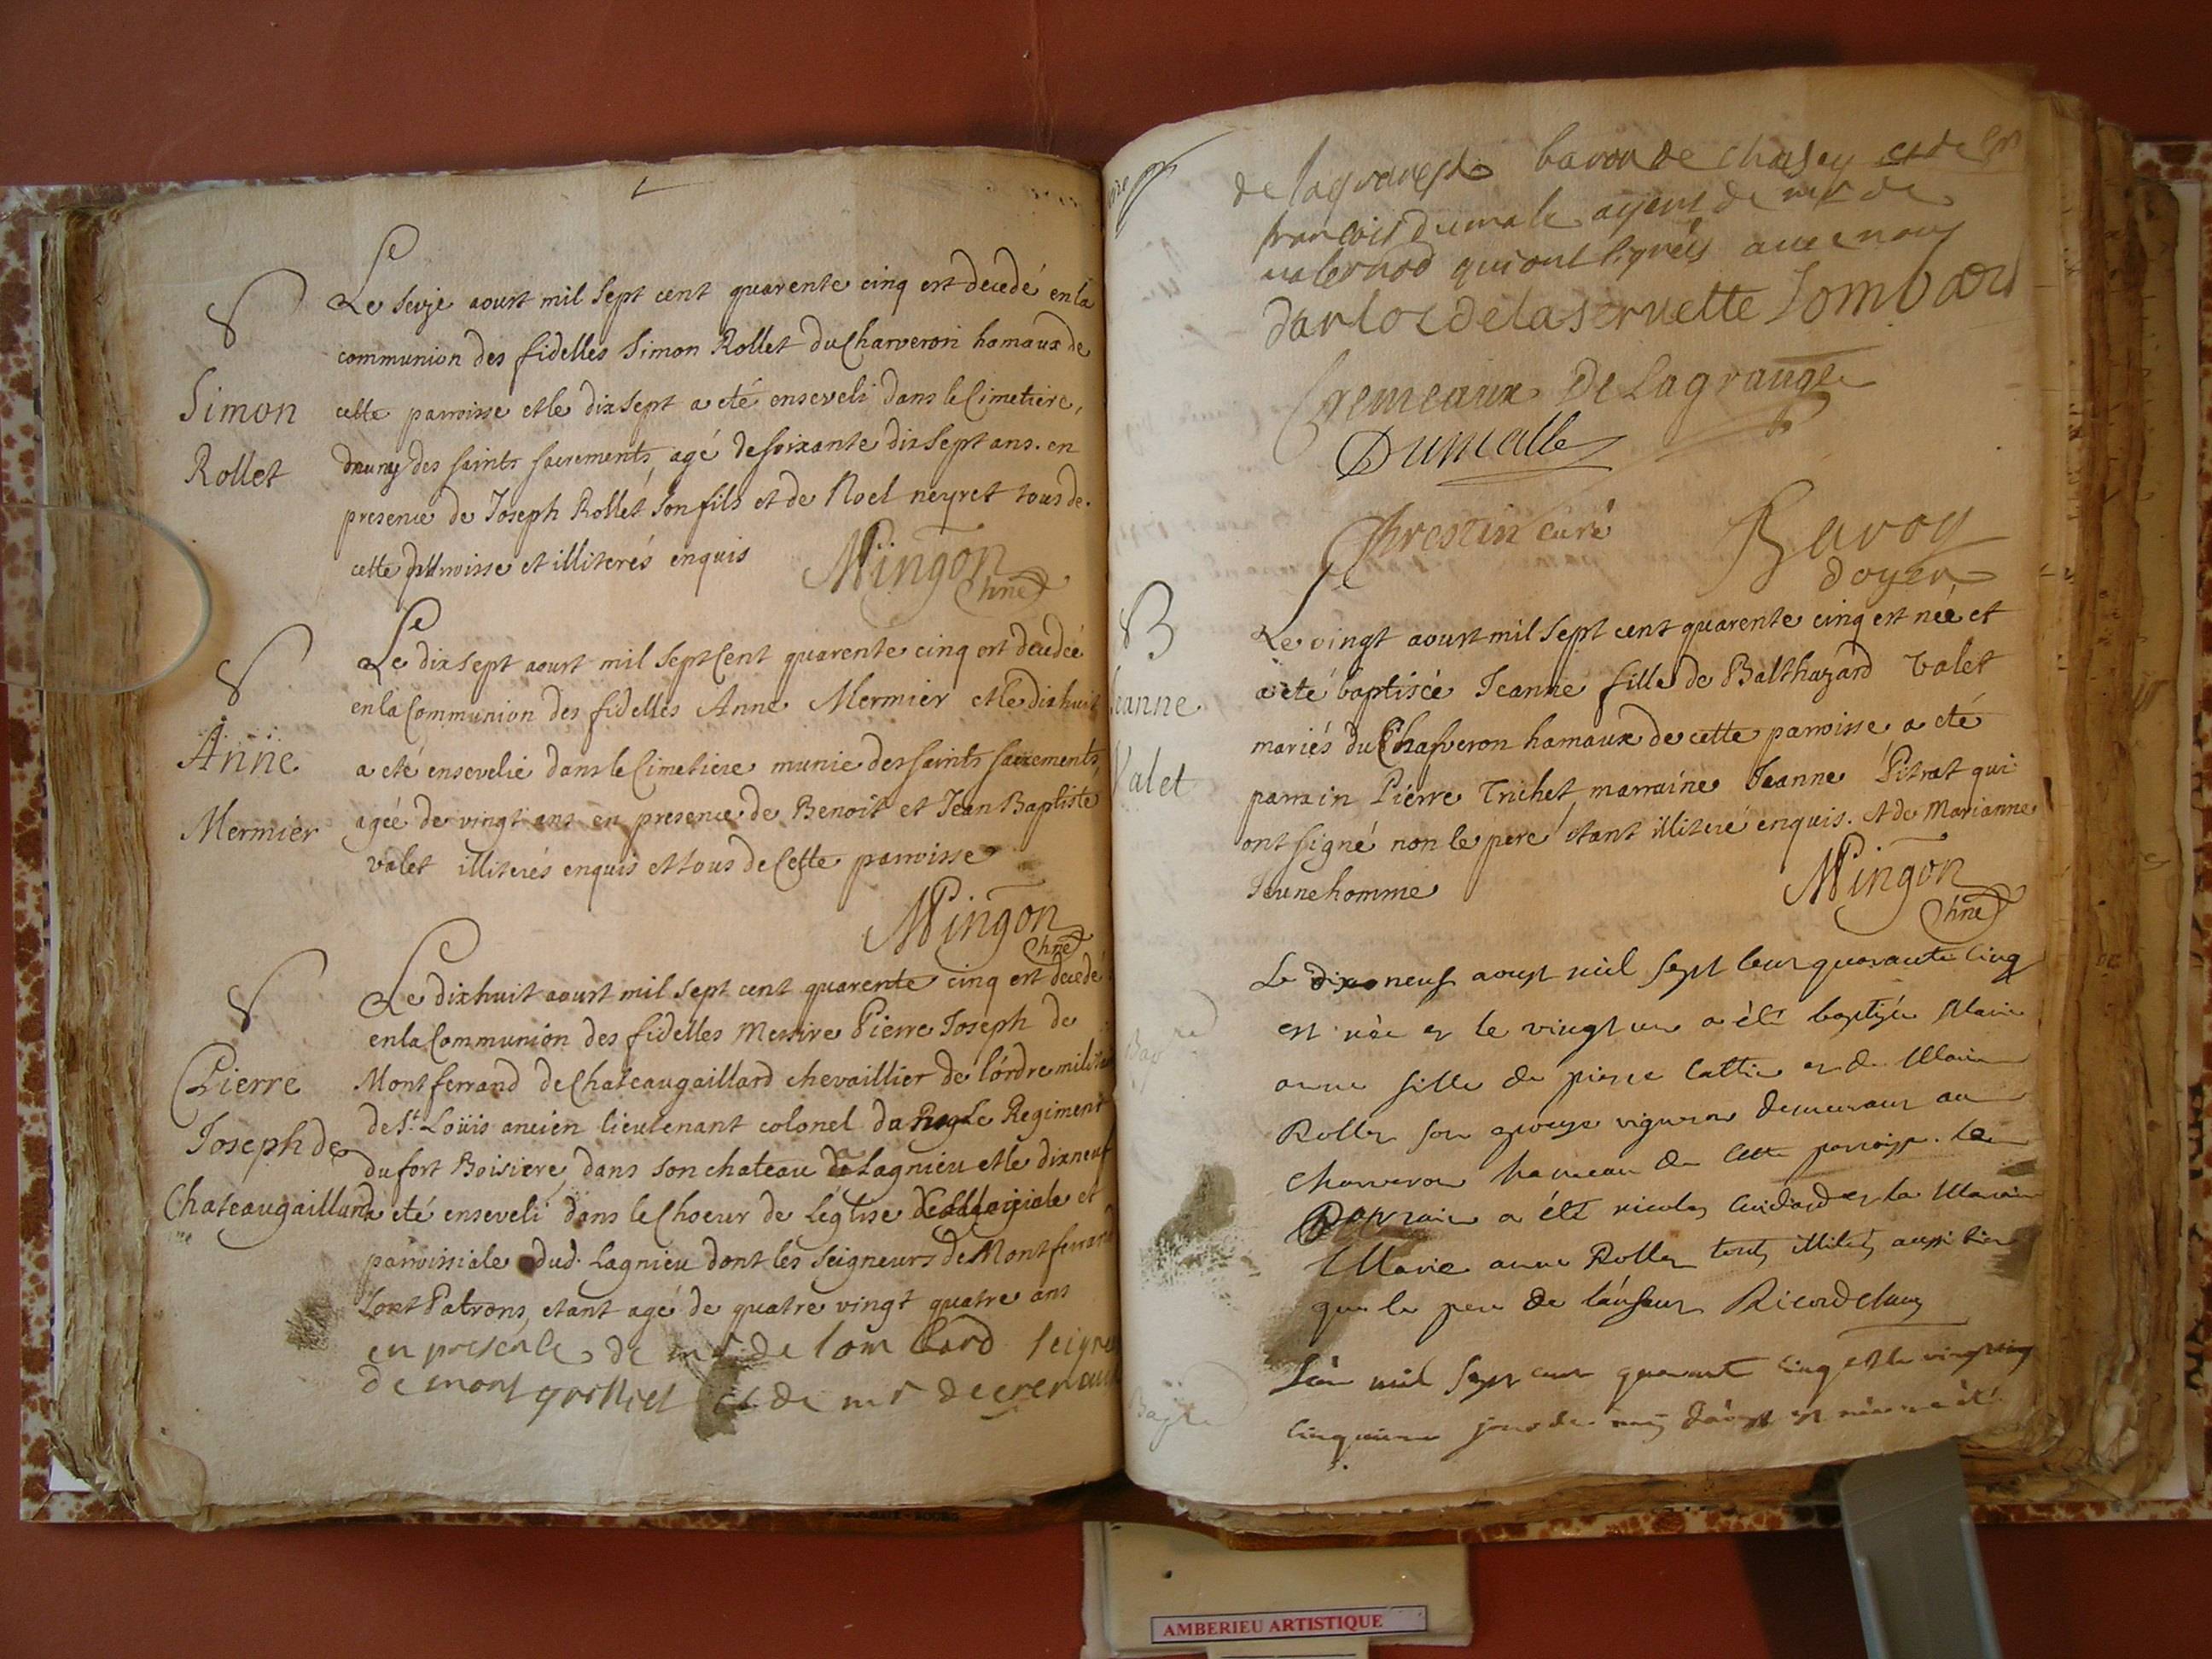 S
Simon
Rollet
Le seize aoust mil sept cent quarente cinq est decedé en la
communion des fidelles Simon Rollet du Charveron hamaux de
cette parroisse et le dix sept a eté enseveli dans le Cimetiere,
des saints sacrements, agé de soixante dix sept ans. en
presence de Joseph Rollet son fils et de Noel neyret tous de
cette parroisse et illiterés enquis
Mingon
S
Anne
Mermier
Le dix sept aoust mil sept Cent quarente cinq est decedée
en la Communion des fidelles Anne Mermier et le dix huit
a eté ensevelie dans le Cimetiere munie des saints sacrements,
agée de vingt ans en presence de Benoit et Jean Baptiste
valet illiterés enquis et tous de Cette parroisse
Mingon
S
Pierre
Joseph de
Chateaugaillard
Le dix huit aoust mil sept cent quarente cinq est decedé
en la Communion des fidelles Messire Pierre Joseph de
Montferrand de Chateaugaillard chevaillier de l'ordre
de St. Loüis ancien lieutenant colonel Regiment
du fort Boisiere, dans son chateau de Lagnieu et le dix neuf
a eté enseveli dans le Choeur de Leglise et
parroissiale dud. Lagnieu dont les seigneurs de Montferrand
sont Patrons, etant agé de quatre vingt quatre ans
en presence de mr de lombard
de et de mr de
baron de et de
francois dumale agent de mr de
qui ont signés avec nous
de la servette Lombard
Cremeaux De Lagrange
Dumalle
Chrestin curé
Bavoy
doyen
B
Jeanne
Valet
Le vingt aoust mil sept cent quarente cinq est née et
a eté baptisée Jeanne fille de Balthazard Valet
mariés du hamaux de cette parroisse a eté
parrain Pierre Trichet marraine Jeanne Pitrat qui
ont signé non le pere etant illiteré enquis. et de Marianne
Jeunehomme
Mingon
Le dix neuf aoust mil sept cent quarante cinq
est née et le vingt un a été baptizée Marie
anne fille de pierre et de Marie
Rollet son epouse vigneron demeurant au
charveron hameau de cette parroisse. le
Parrain a été nicolas et la Maraine
Marie anne Rollet touts aussi bien
que le pere de l'enfant
L'an mil sept cent quarante cinq et le vingt
cinquieme jour du mois d'aoust est née
AMBERIEU ARTISTIQUE